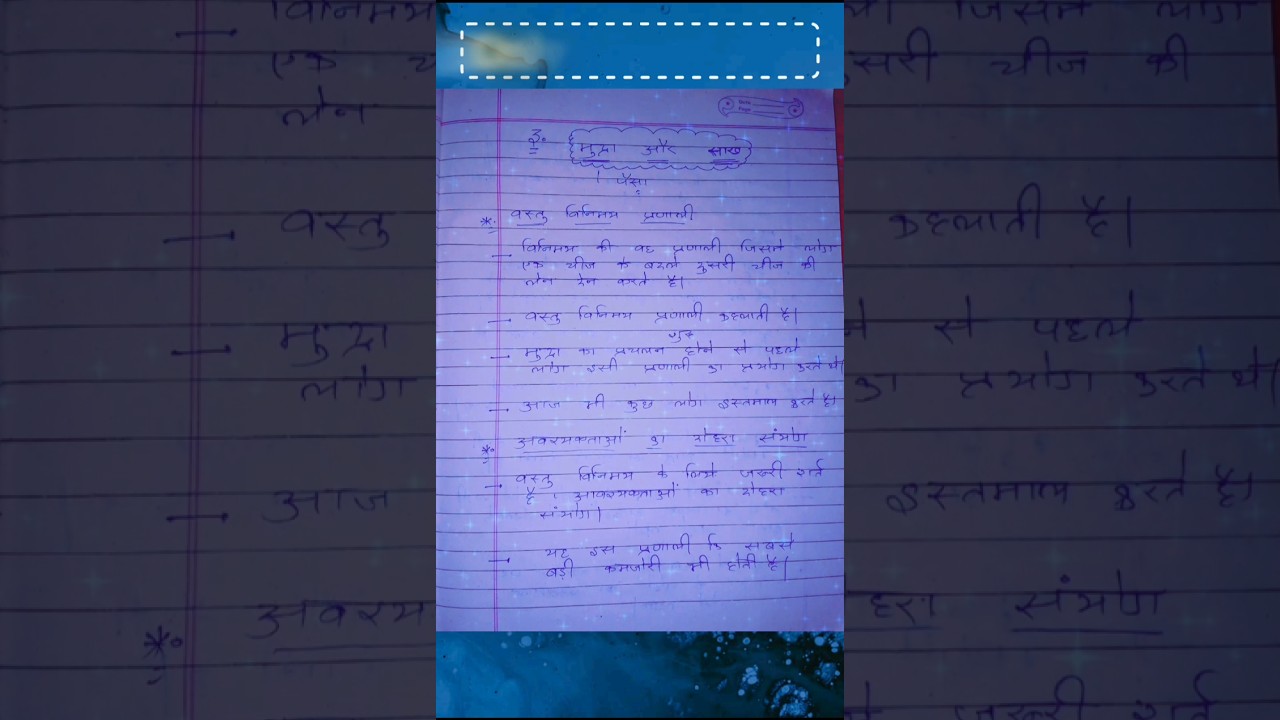 3.
मुद्रा और साख
पैसा
*: वस्तु विनिमय प्रणाली
→ विनिमय की वह प्रणाली जिसमे लोग
एक चीज के बदले दुसरी चीज की
लेन देन करते है।
→ वस्तु विनिमय प्रणाली कहलाती है।
शुरू
→ मुद्रा का प्रचालन होने से पहले
लोग इसी प्रणाली का प्रयोग करते थे।
→ आज भी कुछ लोग इस्तमाल करते है।
*: आवश्यकताओं का दोहरा संयोग
→ वस्तु विनिमय के लिये जरूरी शर्त
है : आवश्यकताओं का दोहरा
संयोग।
→ यह इस प्रणाली कि सबसे
बड़ी कमजोरी भी होती है।